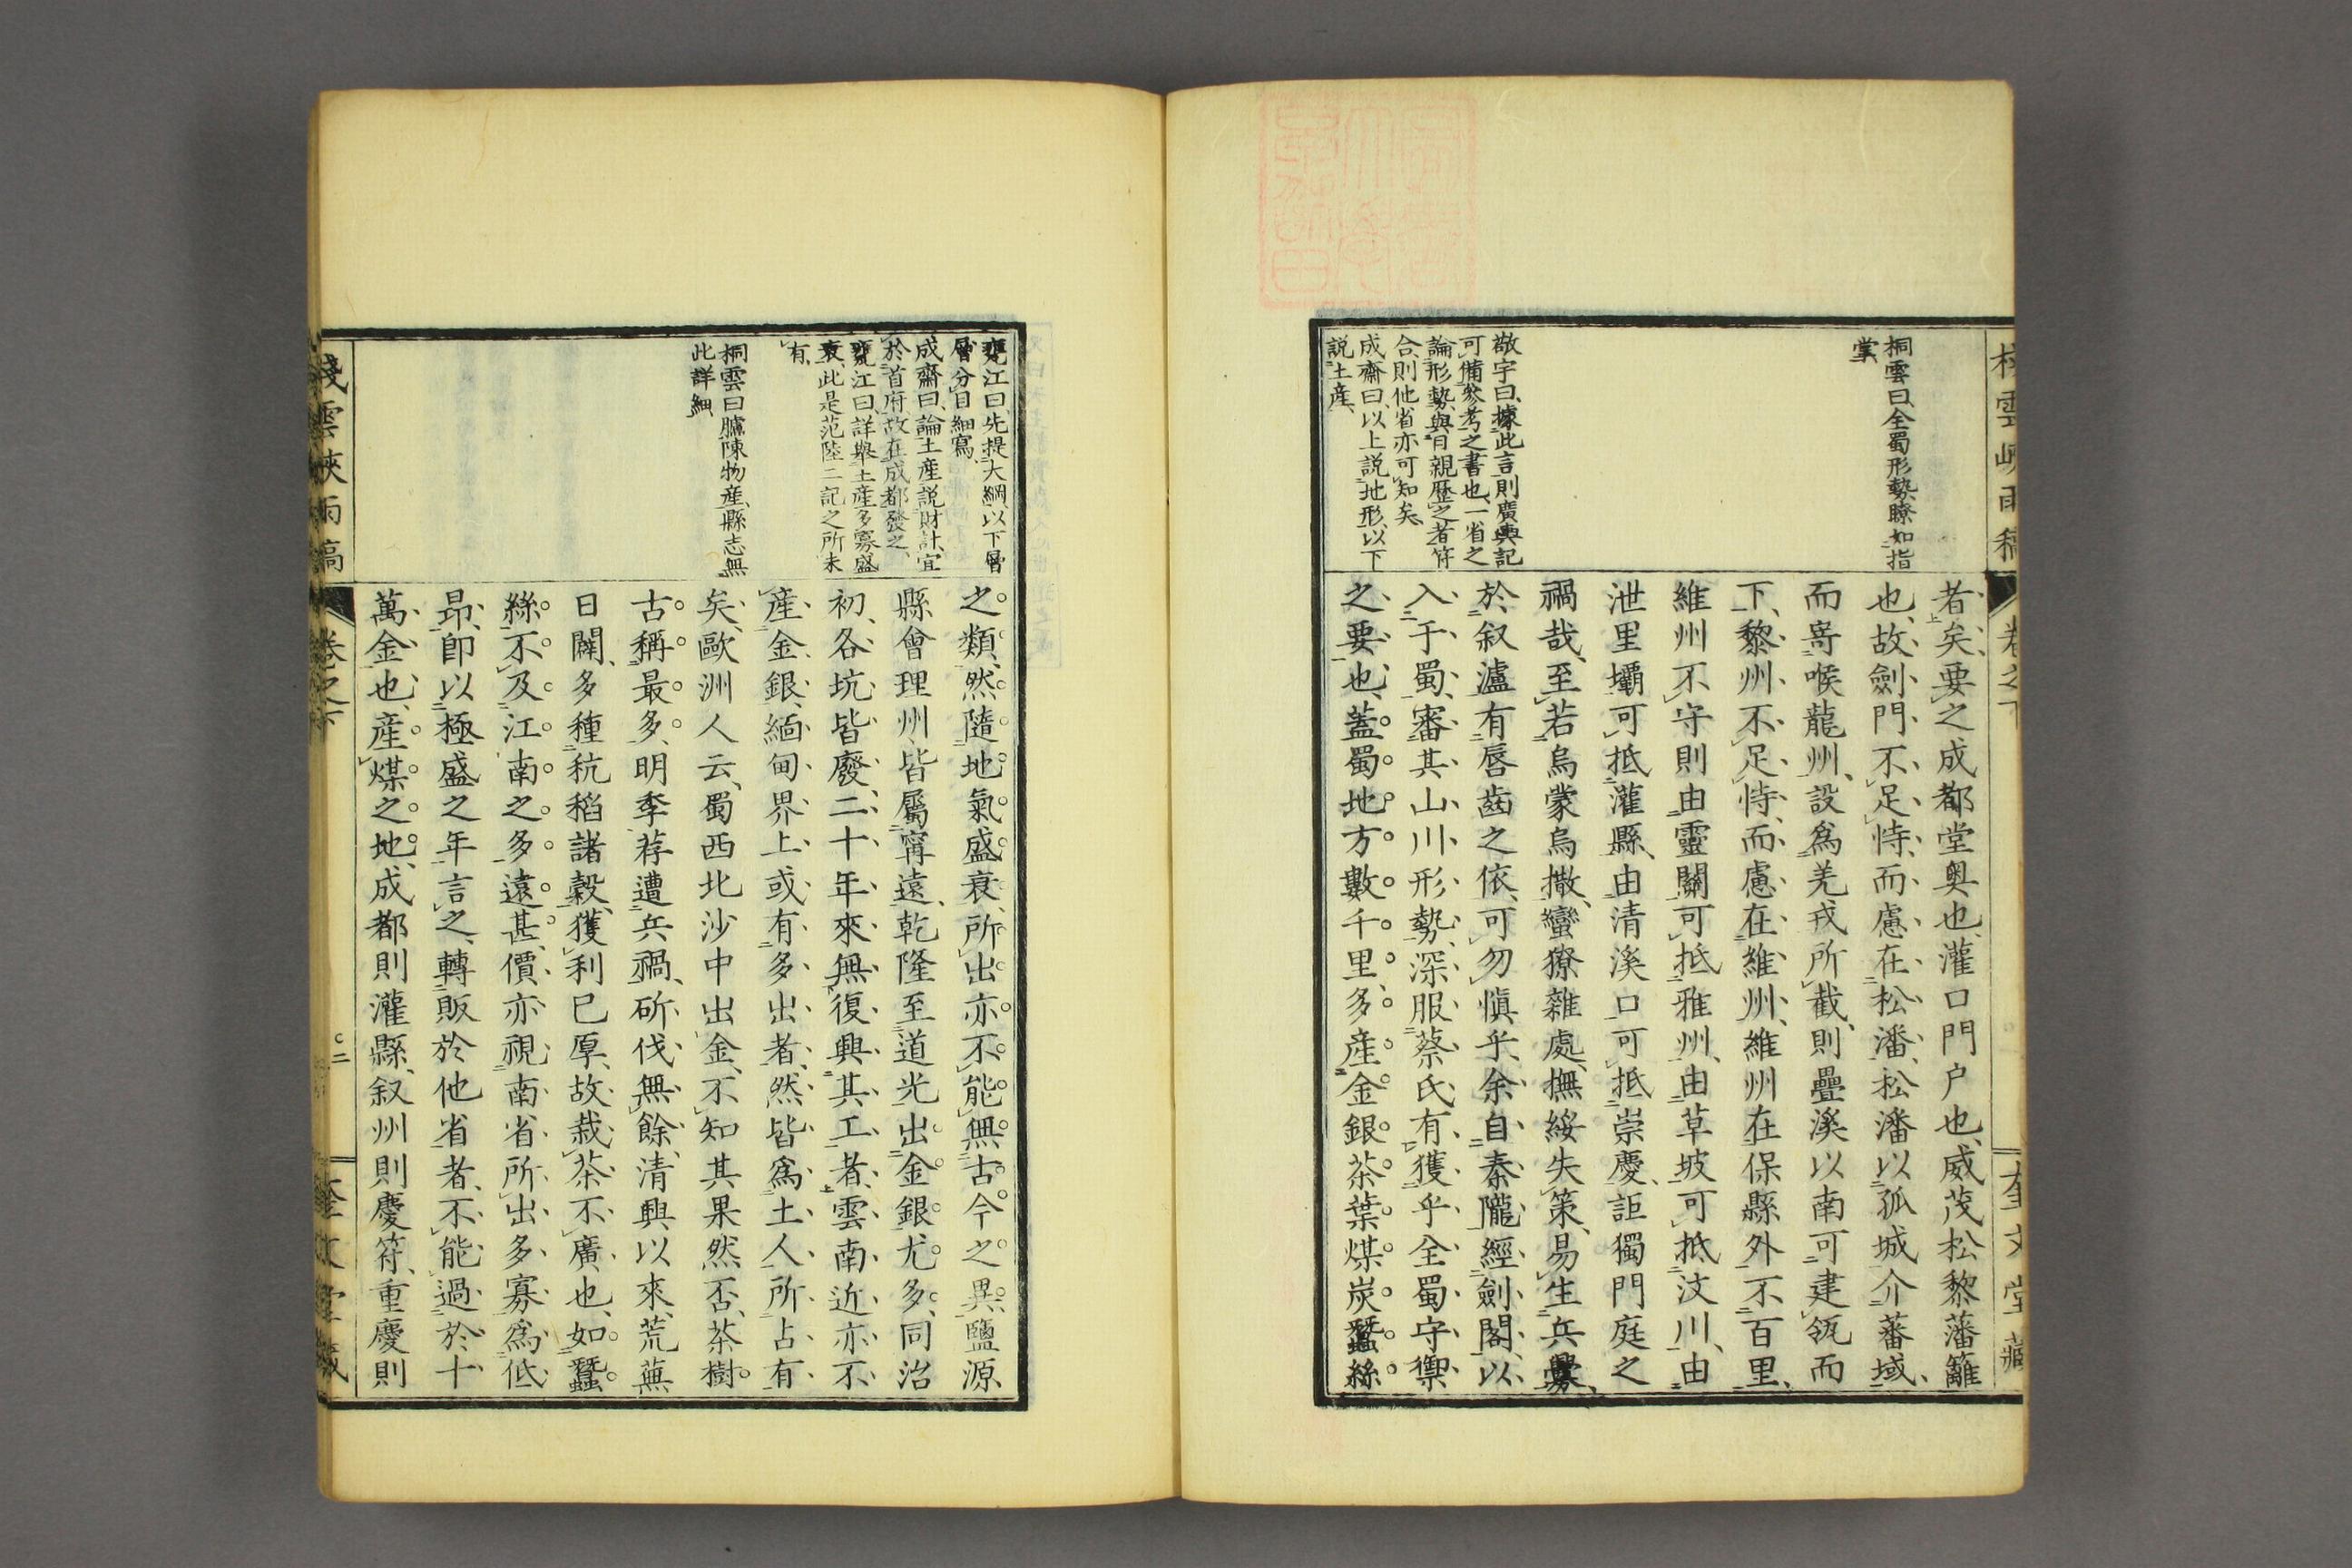 棧雲峽雨稿
卷之下
奎文堂藏
桐雲曰全蜀形勢瞭如指
掌
敬宇曰據此言則廣輿記
可備參考之書也一省之
論形勢與目親歷之者符
合則他省亦可知矣
成齋曰以上説地形以下
説土産
者矣要之成都堂奥也灌口門户也威茂松黎藩籬
也故劍門不足恃而慮在松潘松潘以孤城介蕃域
而嵜喉龍州設爲羌戎所截則疊溪以南可建瓴而
下黎州不足恃而慮在維州維州在保縣外不百里
維州不守則由靈關可抵雅州由草坡可抵汶川由
泄里壩可抵灌縣由清溪口可抵崇慶詎獨門庭之
禍哉至若烏蒙烏撒蠻獠雜處撫綏失策易生兵釁
於叙瀘有唇齒之依可勿愼乎余自秦隴經劍閣以
入于蜀審其山川形勢深服蔡氏有獲乎全蜀守禦
之要也蓋蜀地方數千里多産金銀茶葉煤炭蠶絲
甕江曰先提大綱以下層
層分目細寫
成齋曰論土産説財計宜
於首府故在成都發之
甕江曰詳舉土産多寡盛
衰此是范陸二記之所未
有
桐雲曰臚陳物産縣志無
此詳細
之類然隨地氣盛衰所出亦不能無古今之異鹽源
縣會理州皆屬寗遠乾隆至道光出金銀尤多同治
初各坑皆廢二十年來無復興其工者雲南近亦不
産金銀緬甸界上或有多出者然皆爲土人所占有
矣歐洲人云蜀西北沙中出金不知其果然否茶樹
古稱最多明季荐遭兵禍斫伐無餘清興以來荒蕪
日闢多種秔稻諸穀獲利已厚故栽茶不廣也如蠶
絲不及江南之多遠甚價亦視南省所出多寡爲低
昂即以極盛之年言之轉販於他省者不能過於十
萬金也産煤之地成都則灌縣叙州則慶符重慶則
棧雲峽雨稿
卷之下
二
奎文堂藏